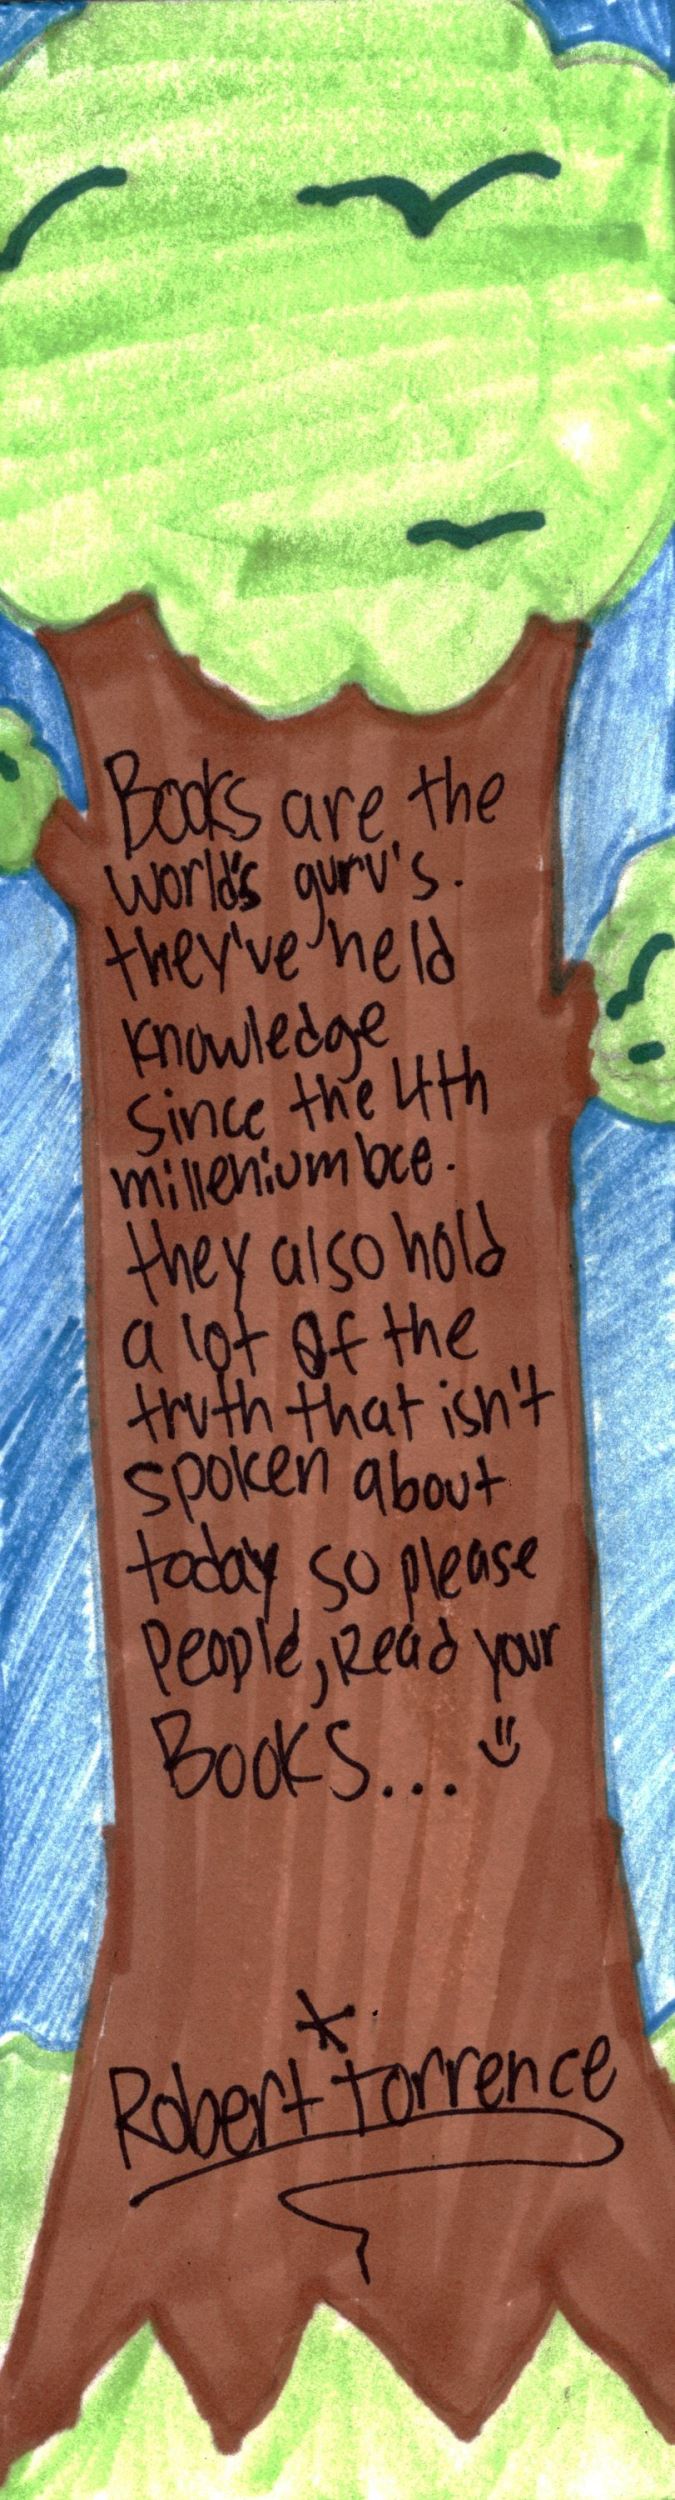 Books are the
world's guru's.
they've held
knowledge
since the 4th
millenium bce.
they also hold
a lot of the
truth that isn't
spoken about
today so please
People, Read your
Books...
Robert Torrence